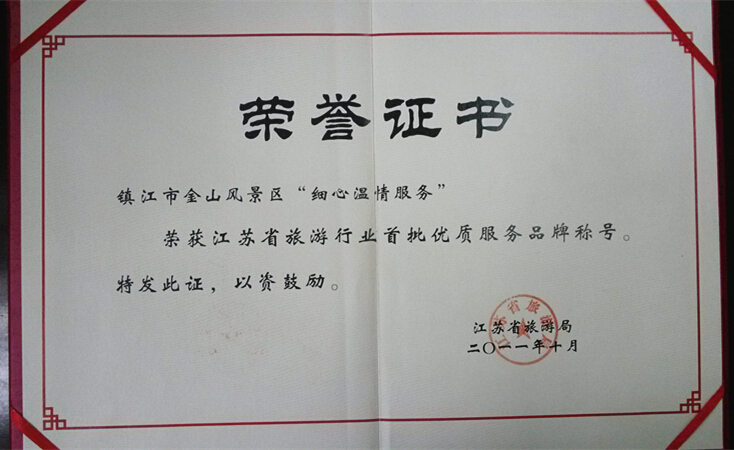 荣誉证书
镇江市金山风景区“细心温情服务”
荣获江苏省旅游行业首批优质服务品牌称号。
特发此证，以资鼓励。
江苏省旅游局
二〇一一年十月
江苏省旅游局